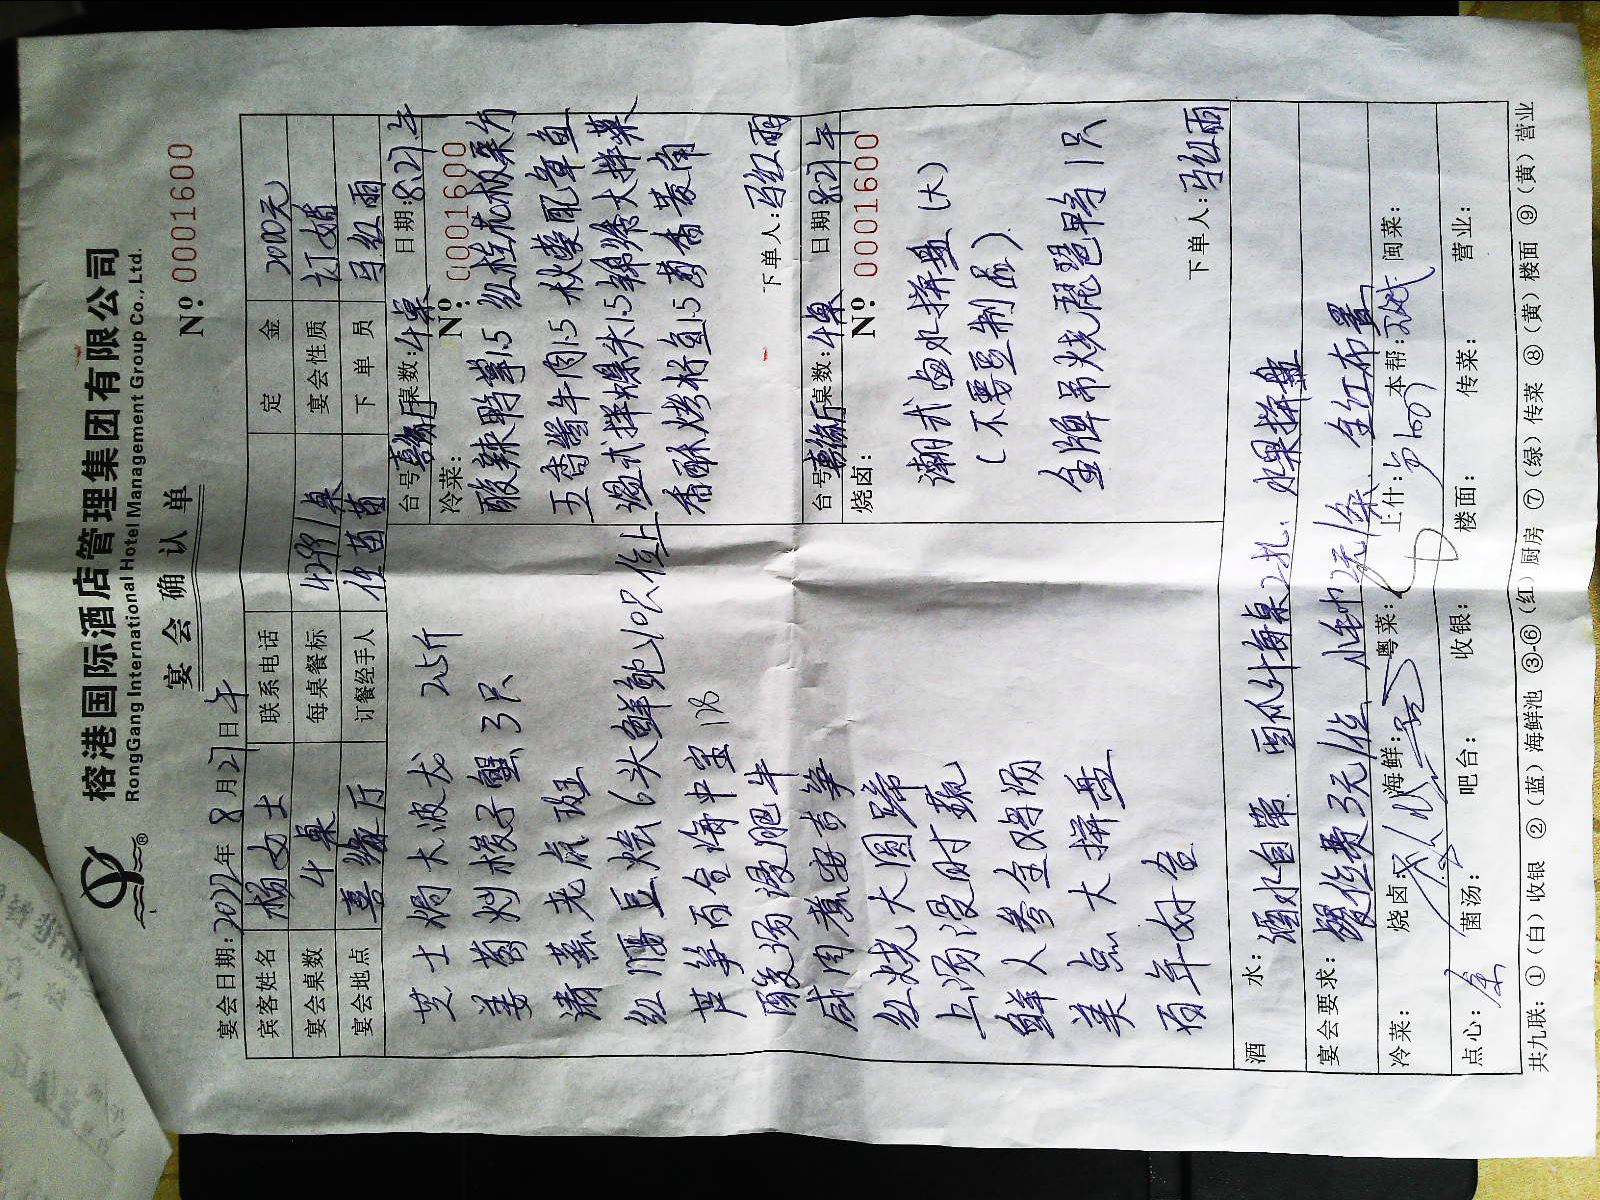 榕港国际酒店管理集团有限公司
RongGang International Hotel Management Group Co., Ltd.
宴会确认单
№ 0001600
宴会日期:2022年8月21日午
宾客姓名 杨女士 联系电话 定金 2000元
宴会桌数 4桌 每桌餐标 4299/桌 宴会性质 订婚
宴会地点 喜缘厅 订餐经手人 佳苗苗 下单员 马红雨
芝士焗大波龙 2.5斤
姜葱炒梭子蟹3只
清蒸老虎斑
红腰豆烩6头鲜鲍10只位上
芦笋百合海中宝
酸汤浸肥牛
咸肉煮安吉笋
红烧大圆蹄
上汤浸时蔬
鲜人参全鸡汤
美点大拼盘
百年好合
台号喜缘厅桌数:4桌 日期:8.21.午
冷菜: №: 0001600
酸辣鸭掌1.5
红桂花板栗仁
五香酱牛肉1.5
秋葵配章鱼
温式拌螺头1.5
锦绣大拌菜
香酥烤籽鱼1.5
下单人:马红雨
台号喜缘厅桌数:4桌 日期8.21午
烧卤: № 0001600
潮式卤水拼盘(大)
(不要豆制品)
金牌吊烧琵琶鸭1只
下单人:马红雨
酒水:酒水自带 西瓜汁每桌2扎. 水果拼盘
宴会要求:餐位费3元/位 2元/条 金红布置
冷菜: 烧卤: 海鲜: 粤菜: 上什: 本帮: 闽菜:
点心: 菌汤: 吧台: 收银: 楼面: 传菜: 营业:
共九联:①(白)收银 ②(蓝)海鲜池 ③-⑥(红)厨房 ⑦(绿)传菜 ⑧(黄)楼面 ⑨(黄)营业